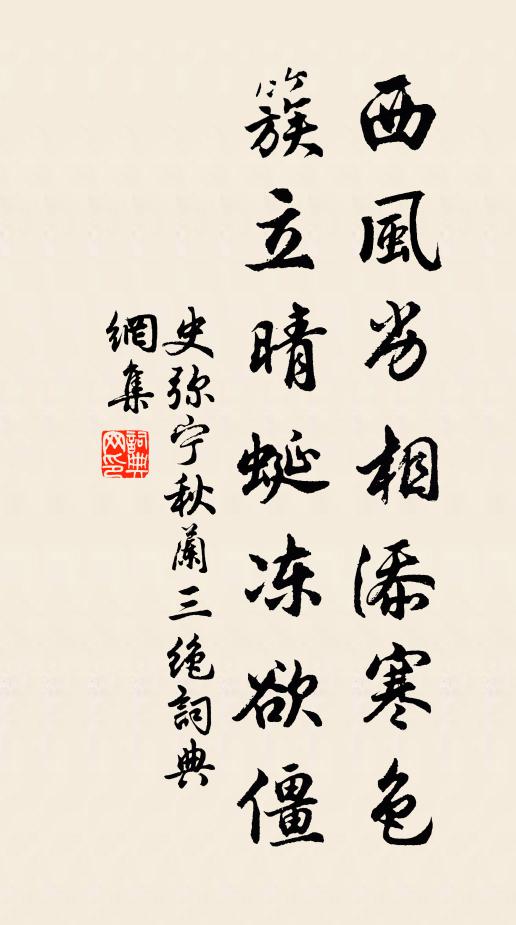 西風劣相添寒色
簇立晴蜓冻欲僵
史弥宁秋蘭三絶詞典
網集
詞典
网印